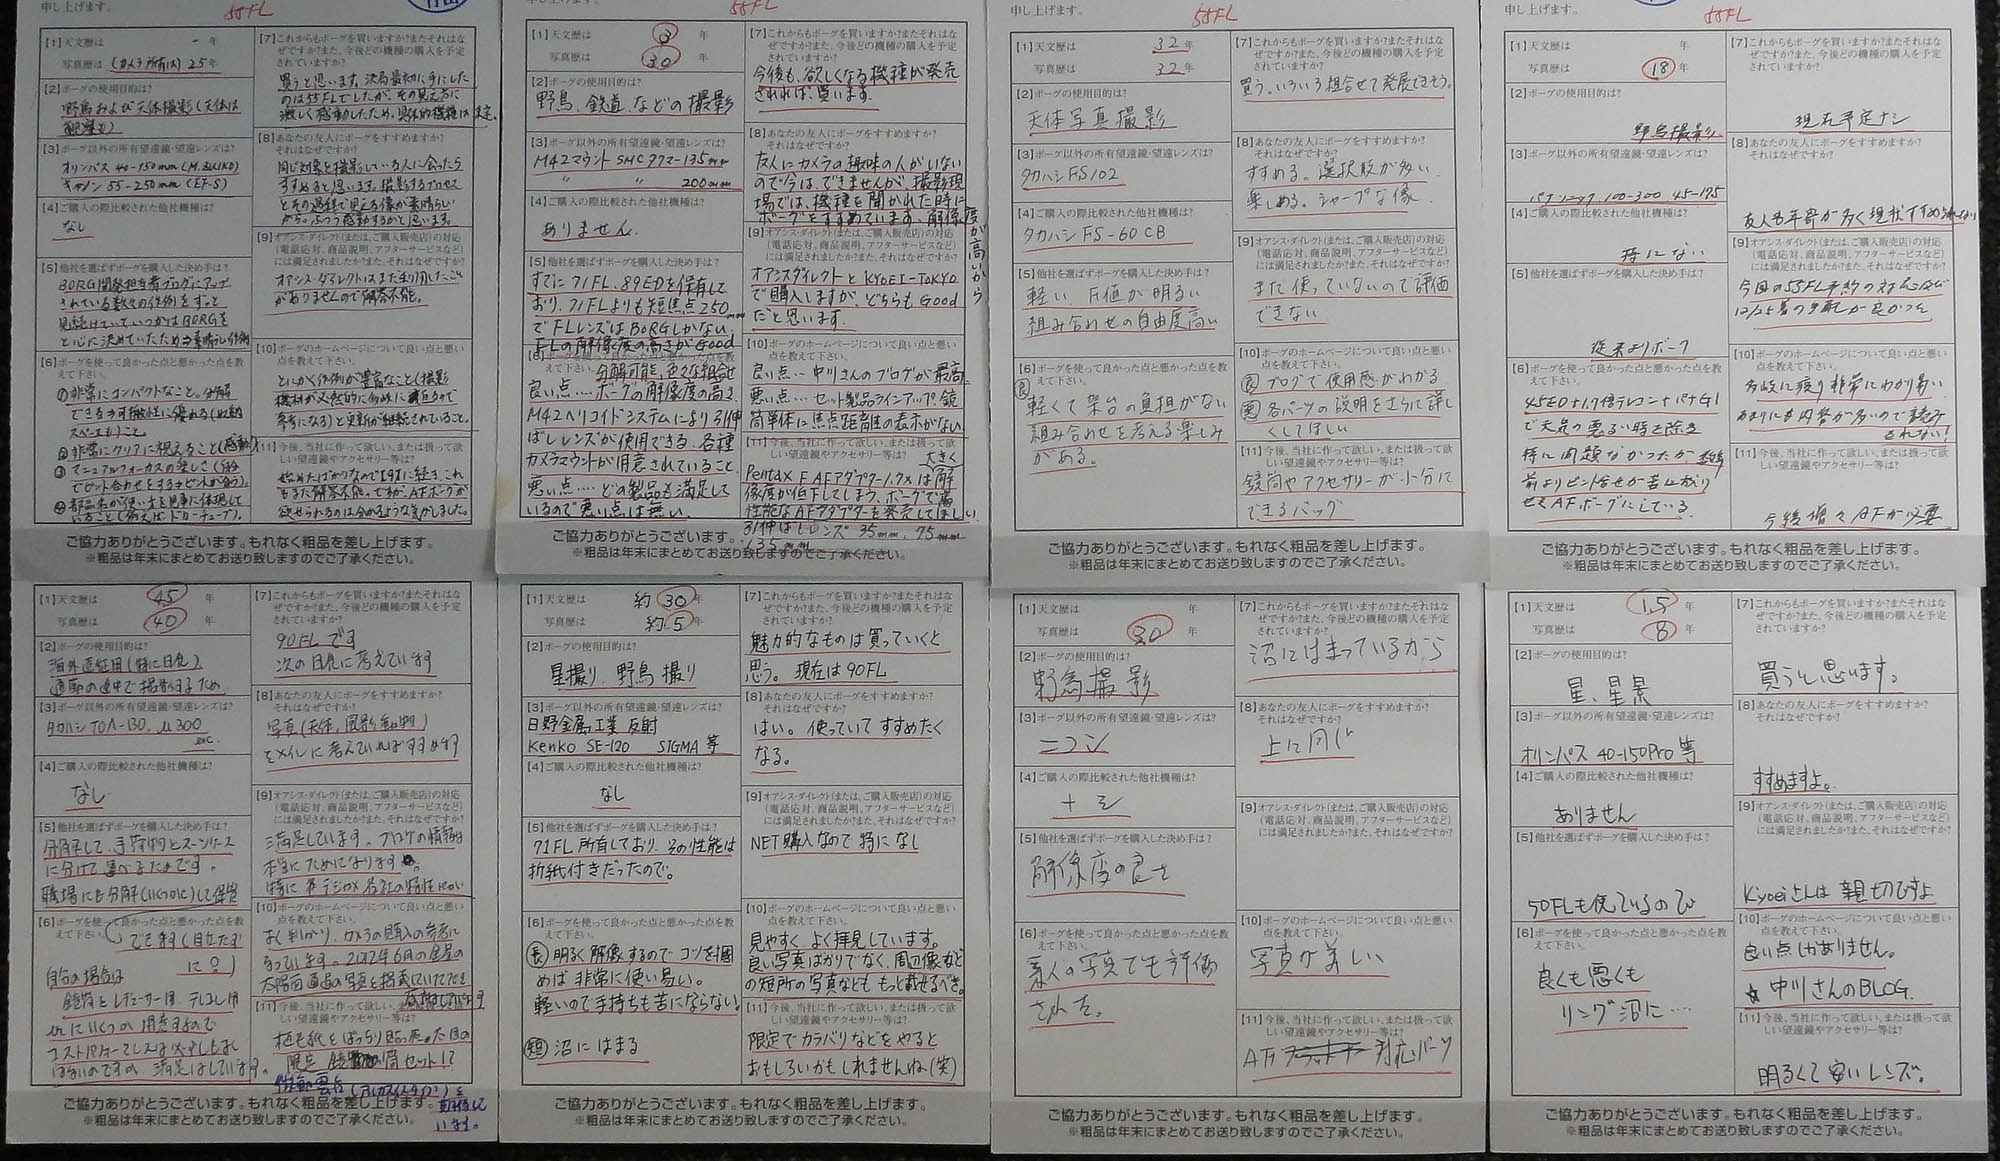 申し上げます。
55FL
【1】天文歴は - 年
写真歴は (カメラ所有は) 25年
【2】ボーグの使用目的は?
野鳥および天体撮影(天体は
観望も)
【3】ボーグ以外の所有望遠鏡・望遠レンズは?
オリンパス 40-150mm (M.ZUIKO)
キヤノン 55-250mm (EF-S)
【4】ご購入の際比較された他社機種は?
なし
【5】他社を選ばずボーグを購入した決め手は?
BORG開発担当者ブログにアップ
されている数々の作例をずっと
見続けていていつかはBORGを
と心に決めていたため
【6】ボーグを使って良かった点と悪かった点を教
えて下さい。
①非常にコンパクトなこと。分解
できる可搬性に優れる
②非常にクリアに視えること(感動)
③マニュアルフォーカスの楽しさ(自分
でピント合わせをする→ピントが合う)。
【7】これからもボーグを買いますか?またそれはな
ぜですか?また、今後どの機種の購入を予定
されていますか?
買うと思います。決局最初に手にした
のは55FLでしたが、その見え方に
激しく感動したため。具体的機種は未定。
【8】あなたの友人にボーグをすすめますか?
それはなぜですか?
同じ対象を撮影している人に会ったら
すすめると思います。撮影するプロセス
とその過程で見える像が素晴らしい
から。ふつう感動するかと思います。
【9】オアシス・ダイレクト(または、ご購入販売店)の対応
(電話応対、商品説明、アフターサービスなど)
には満足されましたか?また、それはなぜですか?
オアシス・ダイレクトはまだ利用したこと
がありませんので解答不能。
【10】ボーグのホームページについて良い点と悪い
点を教えて下さい。
とにかく作例が豊富なこと(撮影
参考になる)と更新が継続されていること。
【11】今後、当社に作って欲しい、または扱って欲
しい望遠鏡やアクセサリー等は?
始めたばかりなので[9]に続き、これ
もまた解答不能。ですが、AFボーグが
欲せられるのは分かるような気がしました。
ご協力ありがとうございます。もれなく粗品を差し上げます。
※粗品は年末にまとめてお送り致しますのでご了承ください。
55FL
【1】天文歴は 3 年
写真歴は 30 年
【2】ボーグの使用目的は?
野鳥、鉄道などの撮影
【3】ボーグ以外の所有望遠鏡・望遠レンズは?
M42マウント SMCタクマー 135mm
〃 〃 200mm
【4】ご購入の際比較された他社機種は?
ありません。
【5】他社を選ばずボーグを購入した決め手は?
すでに71FL、89EDを保有して
おり、71FLよりも短焦点250mm
でFLレンズはBORGしかない。
FLの解像度の高さがGood
【6】ボーグを使って良かった点と悪かった点を教
えて下さい。 分解可能、色々な組合せ
良い点……ボーグの解像度の高さ、
M42ヘリコイドシステムにより引伸
ばしレンズが使用できる、各種
カメラマウントが用意されていること。
悪い点……どの製品も満足して
いるので悪い点は無い。
【7】これからもボーグを買いますか?またそれはな
ぜですか?また、今後どの機種の購入を予定
されていますか?
今後も、欲しくなる機種が発売
されれば、買います。
【8】あなたの友人にボーグをすすめますか?
それはなぜですか?
友人にカメラの趣味の人がいない
ので今は、できませんが、撮影現
場では、機種を聞かれた時に
ボーグとすすめています、解像度が高いから
【9】オアシス・ダイレクト(または、ご購入販売店)の対応
(電話応対、商品説明、アフターサービスなど)
には満足されましたか?また、それはなぜですか?
オアシスダイレクトとKYOEI-TOKYO
で購入しますが、どちらもGood
だと思います。
【10】ボーグのホームページについて良い点と悪い
点を教えて下さい。
良い点…中川さんのブログが最高
悪い点…セット製品ラインアップ、鏡
筒単体に焦点距離の表示がない
【11】今後、当社に作って欲しい、または扱って欲
しい望遠鏡やアクセサリー等は? 大きく
Pentax F AFアダプター1.7xは解
像度が低下してしまう、ボーグで高
性能なAFアダプターを発売してほしい。
引伸ばしレンズ 35mm、75mm
、135mm
ご協力ありがとうございます。もれなく粗品を差し上げます。
※粗品は年末にまとめてお送り致しますのでご了承ください。
申し上げます。
55FL
【1】天文歴は 32 年
写真歴は 32 年
【2】ボーグの使用目的は?
天体写真撮影
【3】ボーグ以外の所有望遠鏡・望遠レンズは?
タカハシFS102
【4】ご購入の際比較された他社機種は?
タカハシFS-60CB
【5】他社を選ばずボーグを購入した決め手は?
軽い、F値が明るい
組み合わせの自由度高い
【6】ボーグを使って良かった点と悪かった点を教
えて下さい。
良
軽くて架台の負担がない
組み合わせを考える楽しみ
がある。
【7】これからもボーグを買いますか?またそれはな
ぜですか?また、今後どの機種の購入を予定
されていますか?
買う。いろいろ組合せて発展できそう。
【8】あなたの友人にボーグをすすめますか?
それはなぜですか?
すすめる。選択肢が多い、
楽しめる。シャープな像。
【9】オアシス・ダイレクト(または、ご購入販売店)の対応
(電話応対、商品説明、アフターサービスなど)
には満足されましたか?また、それはなぜですか?
まだ使っていないので評価
できない
【10】ボーグのホームページについて良い点と悪い
点を教えて下さい。
良 ブログで使用感がわかる
悪 各パーツの説明をさらに詳し
くしてほしい
【11】今後、当社に作って欲しい、または扱って欲
しい望遠鏡やアクセサリー等は?
鏡筒やアクセサリーが小分に
できるバッグ
ご協力ありがとうございます。もれなく粗品を差し上げます。
※粗品は年末にまとめてお送り致しますのでご了承ください。
申し上げます。
55FL
【1】天文歴は 年
写真歴は 18 年
【2】ボーグの使用目的は?
野鳥撮影
【3】ボーグ以外の所有望遠鏡・望遠レンズは?
パナソニック 100-300 45-175
【4】ご購入の際比較された他社機種は?
特にない
【5】他社を選ばずボーグを購入した決め手は?
従来よりボーグ
【6】ボーグを使って良かった点と悪かった点を教
えて下さい。
45ED+1.7倍テレコン+パナG1
で天気の悪るい時を除き
特に問題なかったが
前よりピント合せが苦に
AFボーグにしている。
【7】これからもボーグを買いますか?またそれはな
ぜですか?また、今後どの機種の購入を予定
されていますか?
現在予定ナシ
【8】あなたの友人にボーグをすすめますか?
それはなぜですか?
友人も年寄が多く現状すすめられない
【9】オアシス・ダイレクト(または、ご購入販売店)の対応
(電話応対、商品説明、アフターサービスなど)
には満足されましたか?また、それはなぜですか?
今回の55FL予約の対応及び
12/25着の手配が良かった
【10】ボーグのホームページについて良い点と悪い
点を教えて下さい。
多岐に渡り非常にわかり易い
あまりにも内容が多いので読み
きれない!
【11】今後、当社に作って欲しい、または扱って欲
しい望遠鏡やアクセサリー等は?
今後増々AFが必要
ご協力ありがとうございます。もれなく粗品を差し上げます。
※粗品は年末にまとめてお送り致しますのでご了承ください。
【1】天文歴は 45 年
写真歴は 40 年
【2】ボーグの使用目的は?
海外遠征用(特に日食)
通勤の途中で撮影するため
【3】ボーグ以外の所有望遠鏡・望遠レンズは?
タカハシTOA-130、μ300
etc
【4】ご購入の際比較された他社機種は?
なし
【5】他社を選ばずボーグを購入した決め手は?
分解して、手荷物とスーツケース
に分けて運べるためです。
職場にも分解(いくつかに)して保管
【6】ボーグを使って良かった点と悪かった点を教
えて下さい。 できます(目立たず
に?)
自分の場合は
鏡筒とレデューサー用、テレコン用
にいくつか用意するので
コストパフォーマンスは
満足はしています。
【7】これからもボーグを買いますか?またそれはな
ぜですか?また、今後どの機種の購入を予定
されていますか?
90FLです
次の日食に考えています
【8】あなたの友人にボーグをすすめますか?
それはなぜですか?
写真(天体、風景、動物)
をメインに考えていればすすめます
【9】オアシス・ダイレクト(または、ご購入販売店)の対応
(電話応対、商品説明、アフターサービスなど)
には満足されましたか?また、それはなぜですか?
満足しています。ブログの情報は
本当にためになります。
特に各デジカメ各社の特性につい
【10】ボーグのホームページについて良い点と悪い
点を教えて下さい。
よく判かり、カメラの購入の参考に
なっています。2012年6月の金星の
太陽面通過の写真を掲載していただき
感謝しています
【11】今後、当社に作って欲しい、または扱って欲
しい望遠鏡やアクセサリー等は?
限定 鏡筒セット!?
ご協力ありがとうございます。もれなく粗品を差し上げます。
※粗品は年末にまとめてお送り致しますのでご了承ください。
【1】天文歴は 約30 年
写真歴は 約5 年
【2】ボーグの使用目的は?
星撮り、野鳥撮り
【3】ボーグ以外の所有望遠鏡・望遠レンズは?
日野金属工業 反射
Kenko SE-120 SIGMA 等
【4】ご購入の際比較された他社機種は?
なし
【5】他社を選ばずボーグを購入した決め手は?
71FL所有しており、その性能は
折紙付きだったので。
【6】ボーグを使って良かった点と悪かった点を教
えて下さい。
長 明るく解像するのでコツを掴
めば非常に使い易い。
軽いので手持ちも苦にならない。
短 沼にはまる
【7】これからもボーグを買いますか?またそれはな
ぜですか?また、今後どの機種の購入を予定
されていますか?
魅力的なものは買っていくと
思う。現在は90FL
【8】あなたの友人にボーグをすすめますか?
それはなぜですか?
はい。使っていてすすめたく
なる。
【9】オアシス・ダイレクト(または、ご購入販売店)の対応
(電話応対、商品説明、アフターサービスなど)
には満足されましたか?また、それはなぜですか?
NET購入なので特になし
【10】ボーグのホームページについて良い点と悪い
点を教えて下さい。
見やすく、よく拝見しています。
良い写真ばかりでなく、周辺像など
の短所の写真などももっと載せるべき。
【11】今後、当社に作って欲しい、または扱って欲
しい望遠鏡やアクセサリー等は?
限定でカラバリなどをやると
おもしろいかもしれませんね(笑)
ご協力ありがとうございます。もれなく粗品を差し上げます。
※粗品は年末にまとめてお送り致しますのでご了承ください。
【1】天文歴は 年
写真歴は 30 年
【2】ボーグの使用目的は?
野鳥撮影
【3】ボーグ以外の所有望遠鏡・望遠レンズは?
ニコン
【4】ご購入の際比較された他社機種は?
ナシ
【5】他社を選ばずボーグを購入した決め手は?
解像度の良さ
【6】ボーグを使って良かった点と悪かった点を教
えて下さい。
素人の写真でも評価
された。
【7】これからもボーグを買いますか?またそれはな
ぜですか?また、今後どの機種の購入を予定
されていますか?
沼にはまっているから
【8】あなたの友人にボーグをすすめますか?
それはなぜですか?
上に同じ
【9】オアシス・ダイレクト(または、ご購入販売店)の対応
(電話応対、商品説明、アフターサービスなど)
には満足されましたか?また、それはなぜですか?
【10】ボーグのホームページについて良い点と悪い
点を教えて下さい。
写真が美しい
【11】今後、当社に作って欲しい、または扱って欲
しい望遠鏡やアクセサリー等は?
AF 対応パーツ
ご協力ありがとうございます。もれなく粗品を差し上げます。
※粗品は年末にまとめてお送り致しますのでご了承ください。
【1】天文歴は 1.5 年
写真歴は 8 年
【2】ボーグの使用目的は?
星、星景
【3】ボーグ以外の所有望遠鏡・望遠レンズは?
オリンパス 40-150Pro 等
【4】ご購入の際比較された他社機種は?
ありません
【5】他社を選ばずボーグを購入した決め手は?
50FLも使ているので
【6】ボーグを使って良かった点と悪かった点を教
えて下さい。
良くも悪くも
リング沼に……
【7】これからもボーグを買いますか?またそれはな
ぜですか?また、今後どの機種の購入を予定
されていますか?
買うと思います。
【8】あなたの友人にボーグをすすめますか?
それはなぜですか?
すすめますよ。
【9】オアシス・ダイレクト(または、ご購入販売店)の対応
(電話応対、商品説明、アフターサービスなど)
には満足されましたか?また、それはなぜですか?
Kyoeiさんは親切ですよ
【10】ボーグのホームページについて良い点と悪い
点を教えて下さい。
良い点しかありません。
☆中川さんのBLOG.
【11】今後、当社に作って欲しい、または扱って欲
しい望遠鏡やアクセサリー等は?
明るくて安いレンズ。
ご協力ありがとうございます。もれなく粗品を差し上げます。
※粗品は年末にまとめてお送り致しますのでご了承ください。